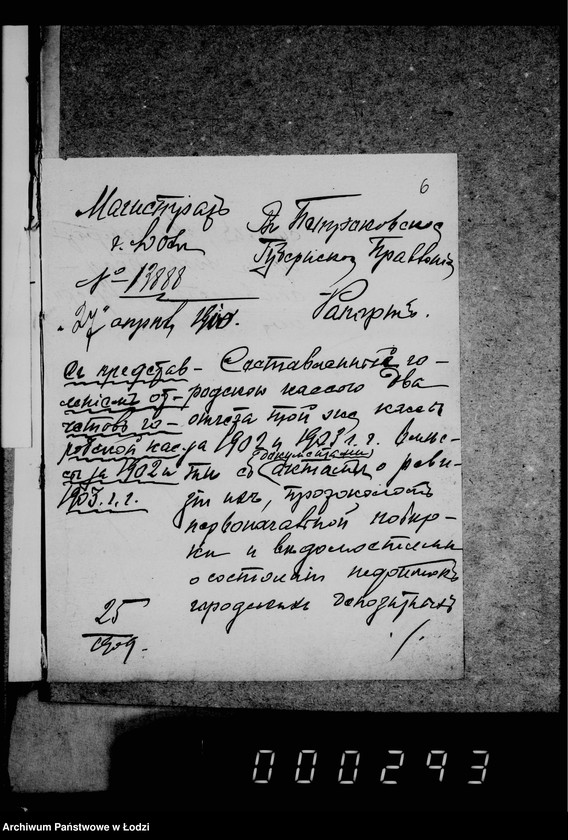 6
Магистратъ
г. Лодзи
№ 13888
"27" апрѣля 190
Въ Петроковское
Губернское Правленіе
Рапортъ.
Съ представ-
леніемъ от-
четовъ го-
родской кас-
сы за 1902 и
1903 г.г.
25
1909.
Составленные го-
родскою кассою два
отчета той же кассы
за 1902 и 1903 г.г. вмѣс-
тѣ съ документами
актами о реви-
зіи ихъ, протоколомъ
первоначальной повѣр-
ки и вѣдомостями
о состояніи недоимокъ
городскихъ депозитныхъ
./.
000293
Archiwum Państwowe w Łodzi